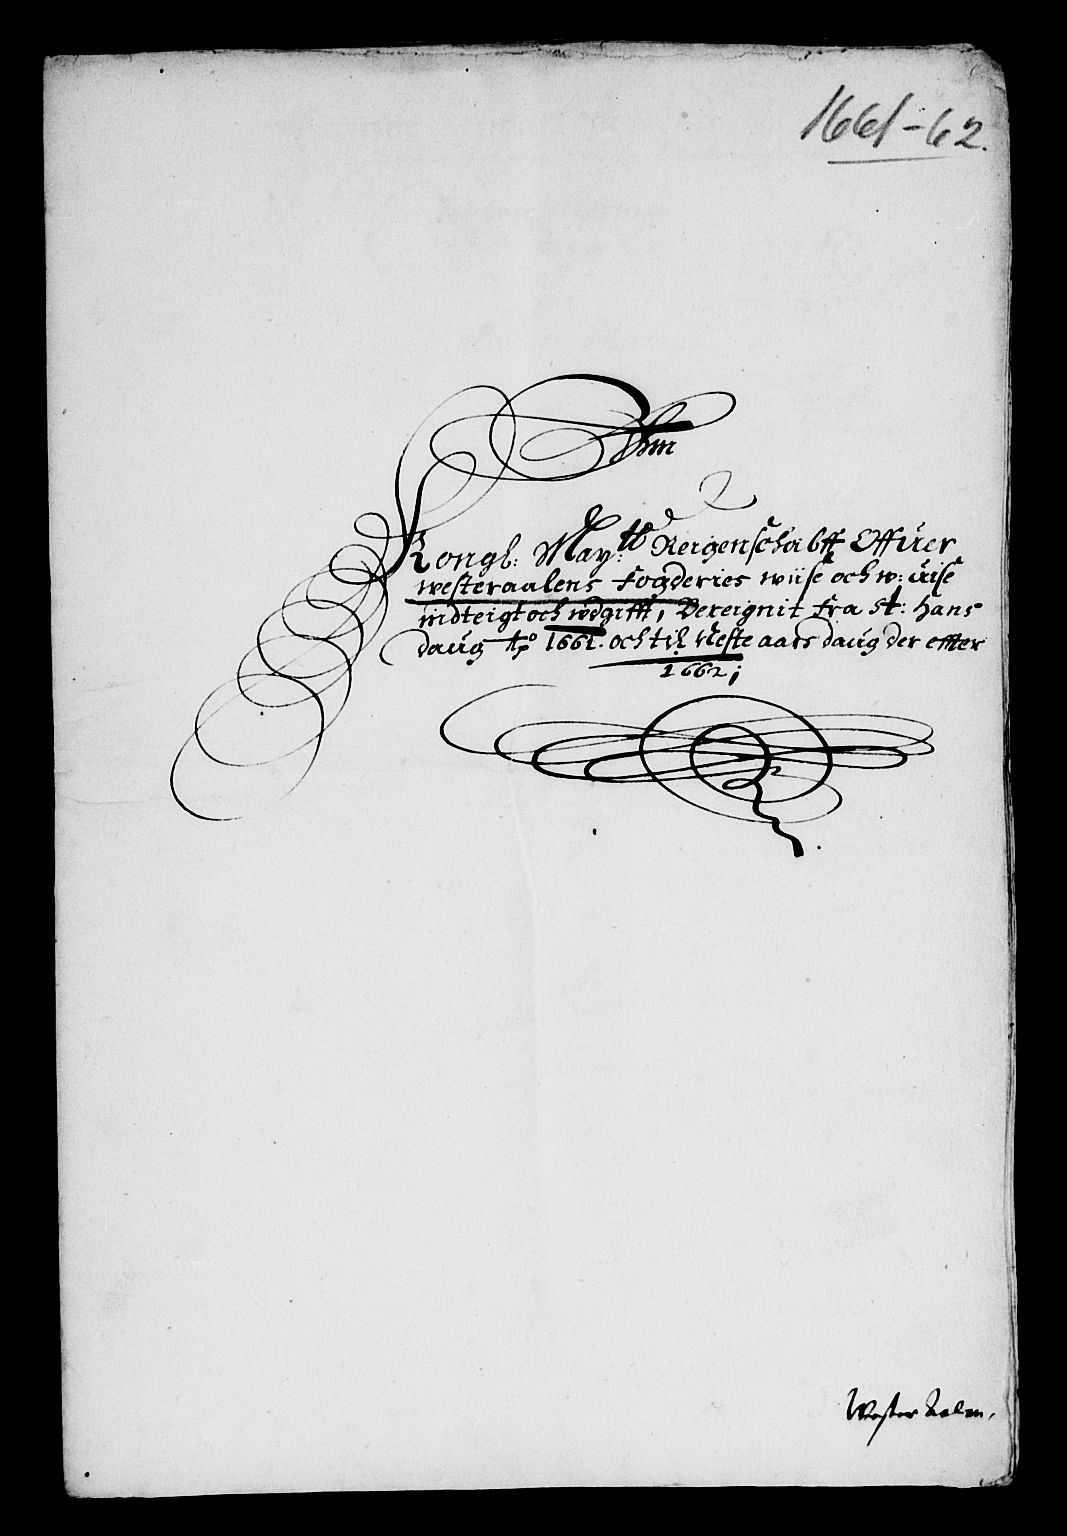 1661-62.
Kongl: May:tts Reigenschabff Offuer
westeraalens Fogderies wiise och w: uise
indteigt och wdgifft, Bereignit Fra St: Hans
daug Ao 1661. och til Neste aars daug der effter
1662;
Wester Aalen.